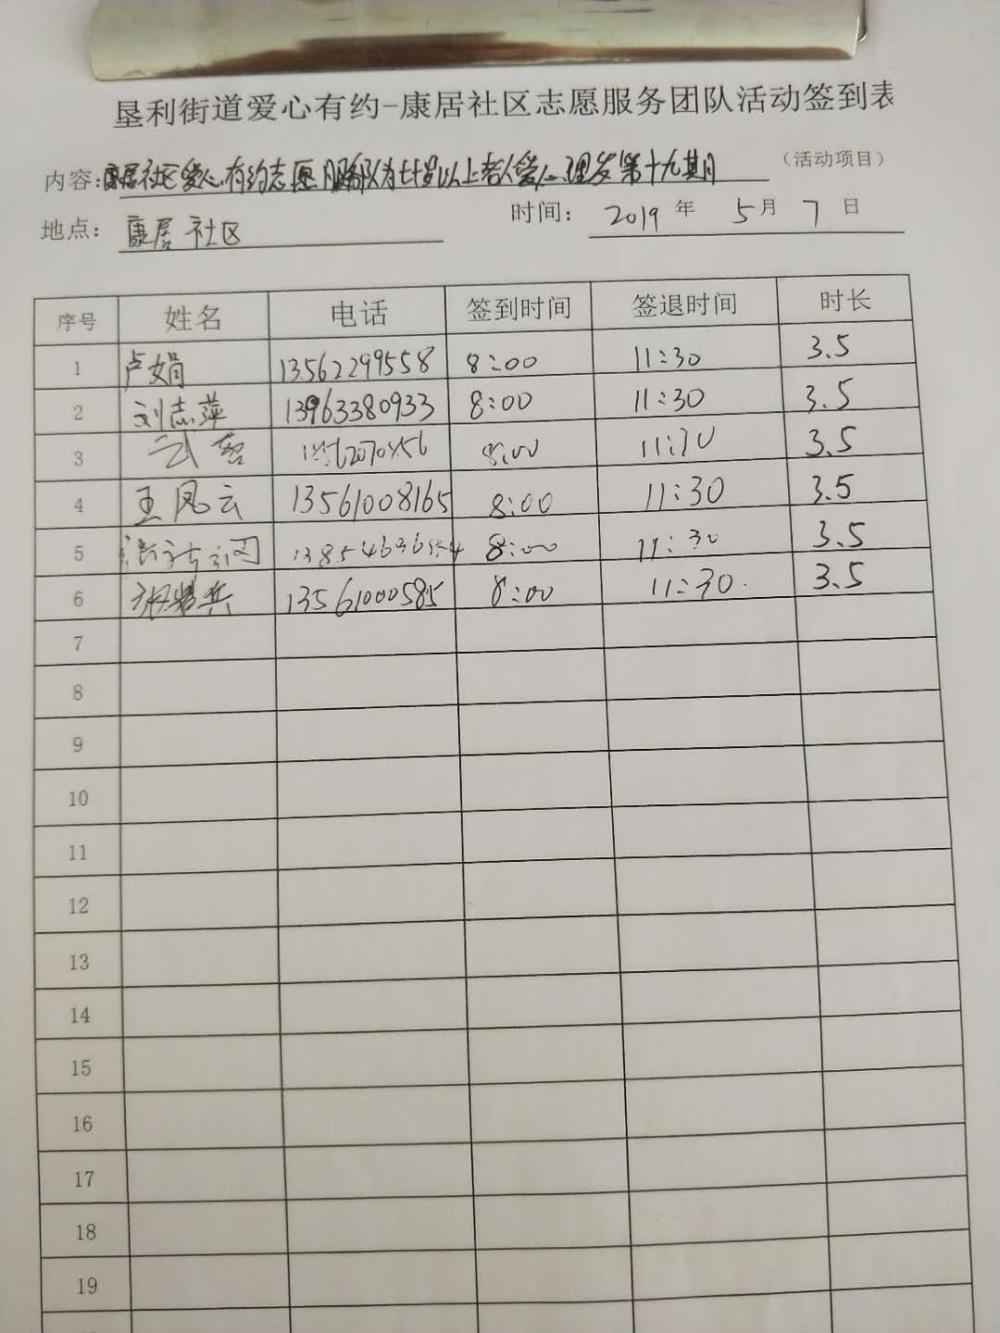 垦利街道爱心有约-康居社区志愿服务团队活动签到表
内容：康居社区爱心有约志愿服务队为七十岁以上老人爱心理发第十九期 （活动项目）
地点：康居社区 时间：2019年5月7日
序号 姓名 电话 签到时间 签退时间 时长
1 卢娟 13562299558 8:00 11:30 3.5
2 刘志萍 13963380933 8:00 11:30 3.5
3 8:00 11:30 3.5
4 王凤云 13561008165 8:00 11:30 3.5
5 8:00 11:30 3.5
6 13561000585 8:00 11:30 3.5
7
8
9
10
11
12
13
14
15
16
17
18
19